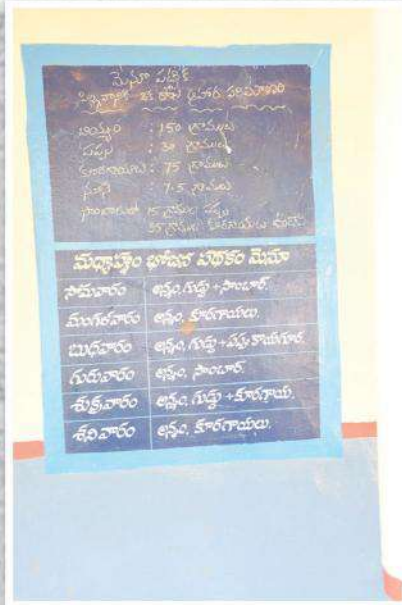 మెనూ పట్టిక
ఒక రోజు ఆహార పరిమాణం
బియ్యం : 150 గ్రాములు
పప్పు : 30 గ్రాములు
కూరగాయలు : 75 గ్రాములు
నూనె : 7.5 గ్రాములు
సాంబారులో 15 గ్రాముల పప్పు
35 గ్రాముల కూరగాయలు
మధ్యాహ్నం భోజన పథకం మెనూ
సోమవారం అన్నం, గుడ్డు + సాంబార్.
మంగళవారం అన్నం, కూరగాయలు.
బుధవారం అన్నం, గుడ్డు + పప్పు కాయగూర.
గురువారం అన్నం, సాంబార్.
శుక్రవారం అన్నం, గుడ్డు + కూరగాయ.
శనివారం అన్నం, కూరగాయలు.